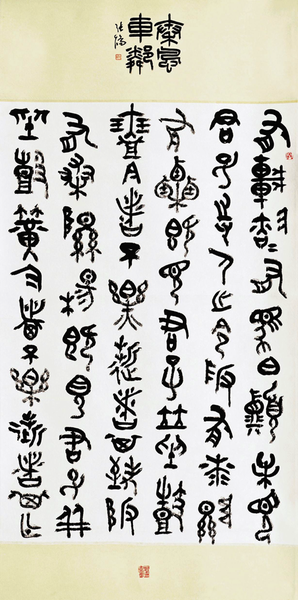 秦風
車鄰
有車鄰=有馬白顛未見
君子寺人之令阪有漆隰
有栗既見君子並坐鼓
瑟今者不樂逝者其耋阪
有桑隰楊既見君子并
坐鼓簧今者不樂逝者其亡